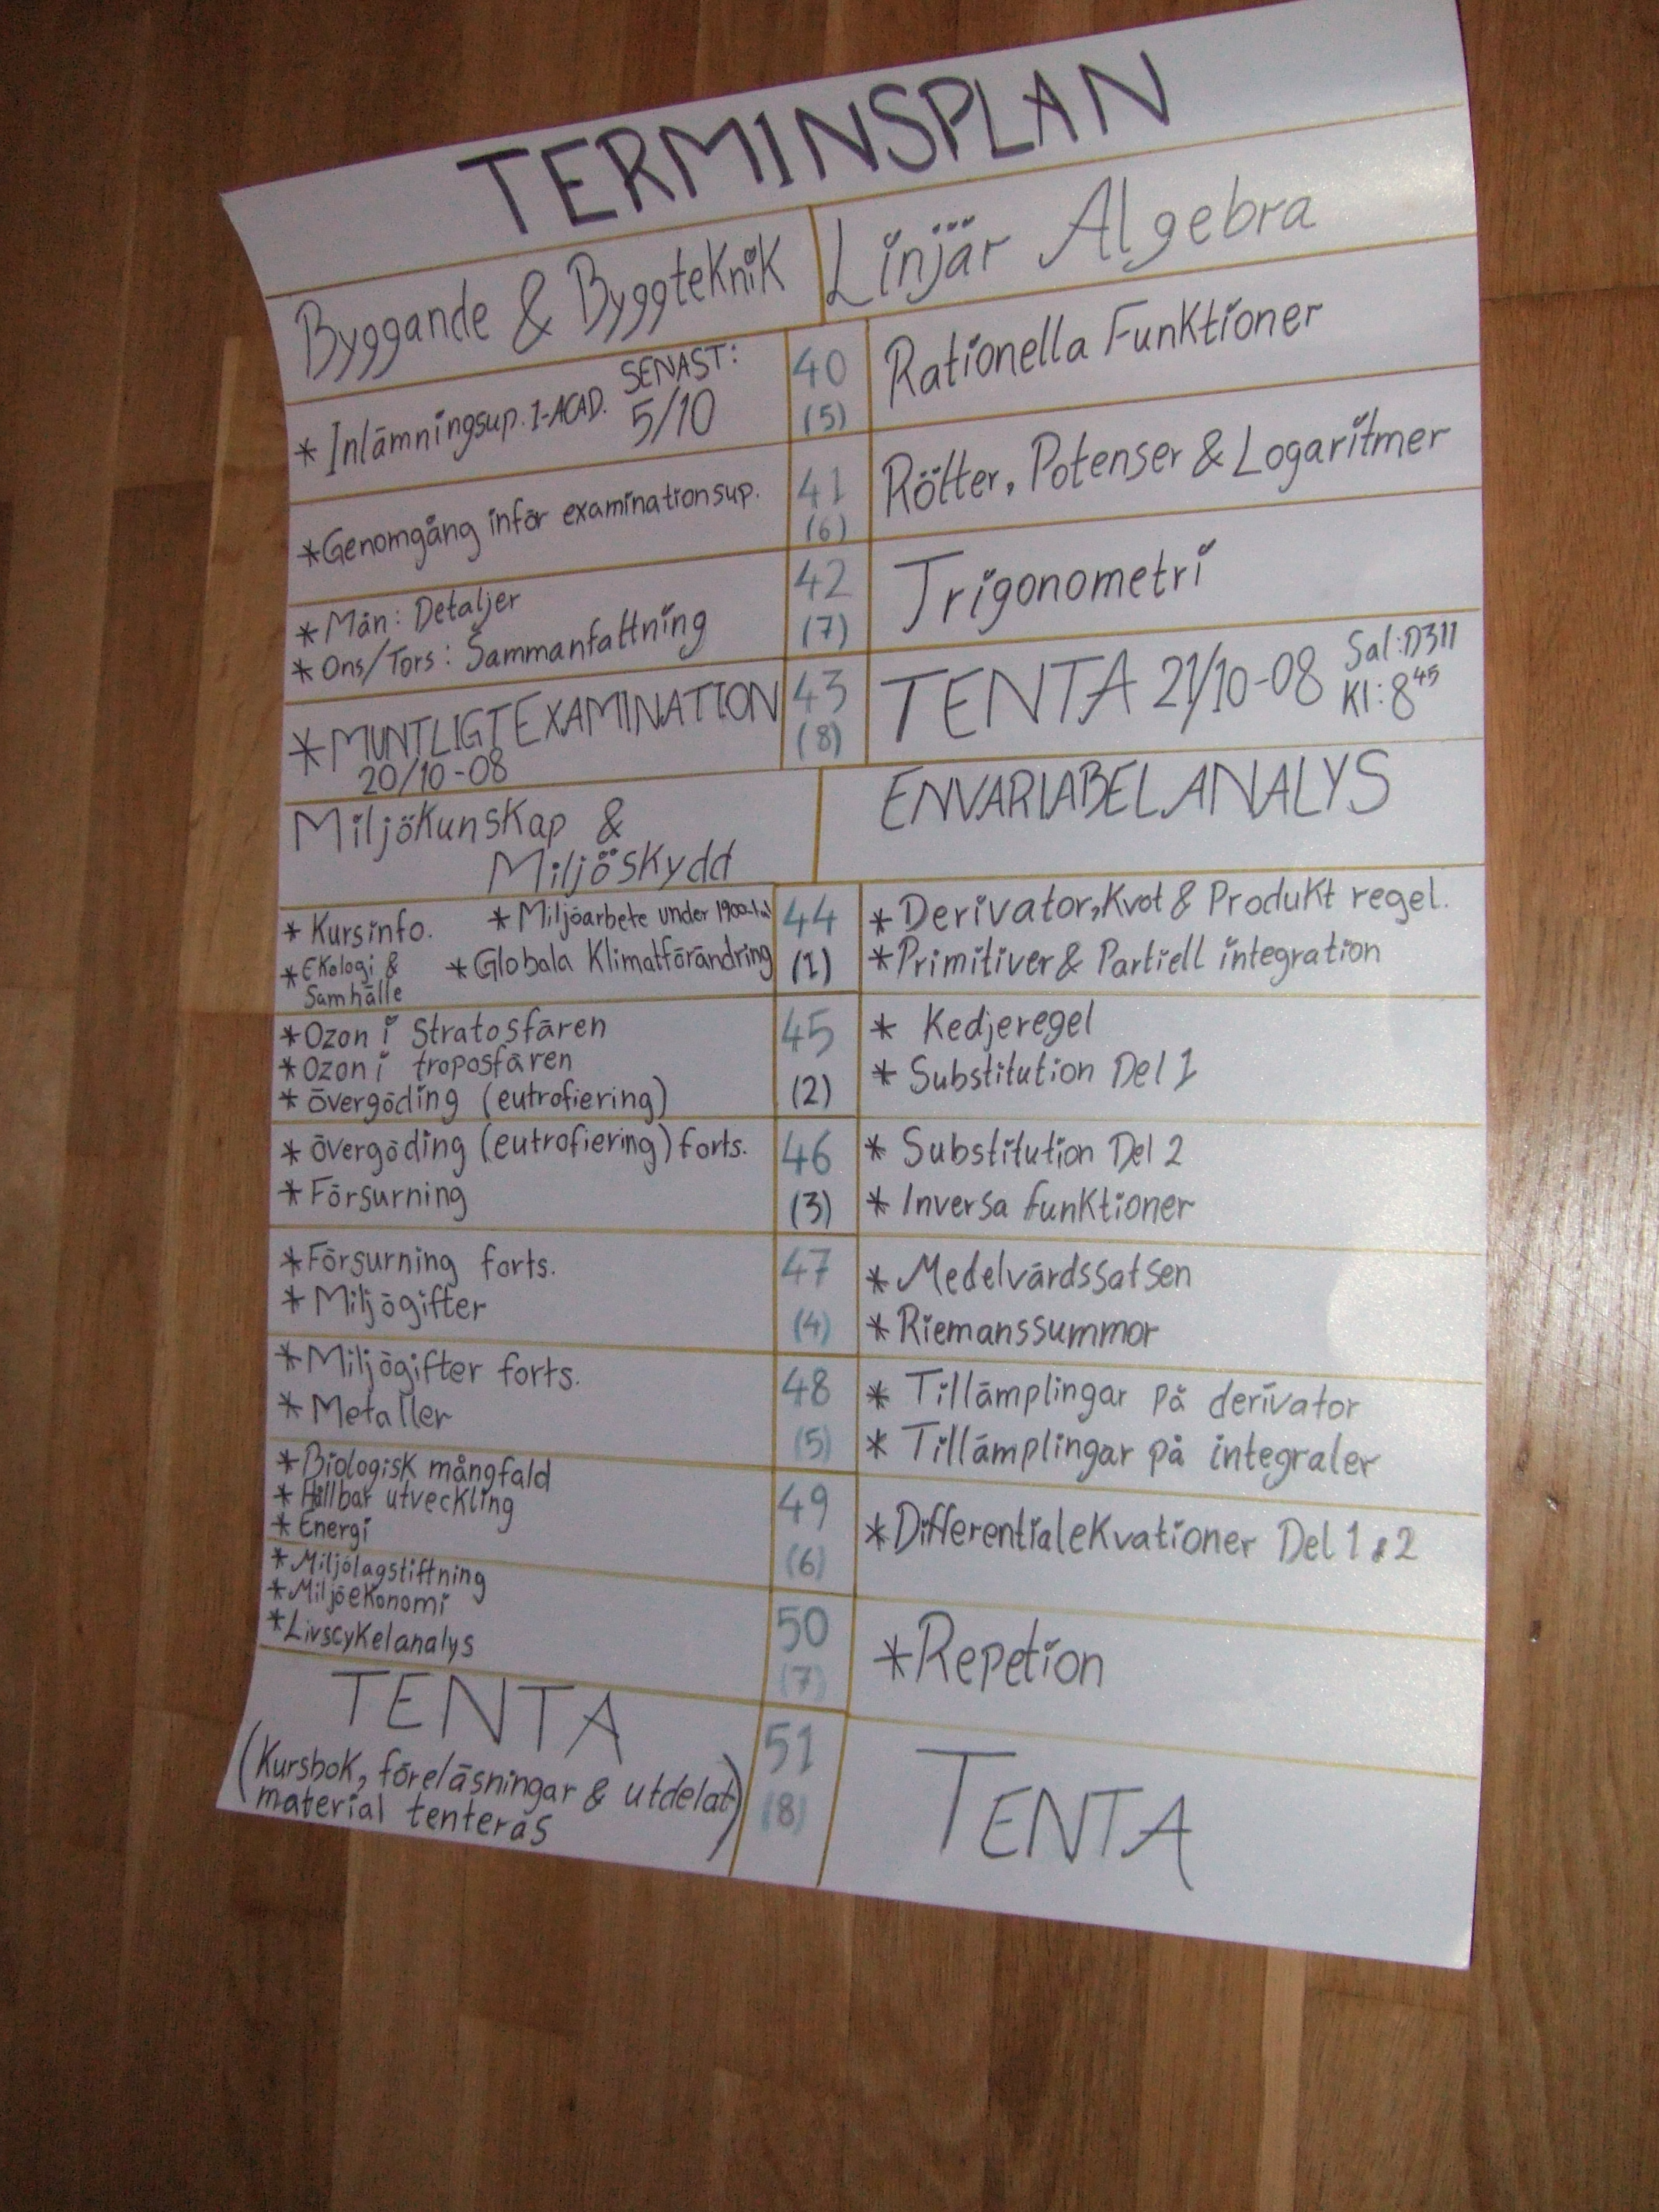 TERMINSPLAN
Byggande & Byggteknik
Linjär Algebra
* Inlämningsup. I-ACAD. SENAST:
5/10
40
(5)
Rationella Funktioner
* Genomgång inför examinationsup.
41
(6)
Rötter, Potenser & Logaritmer
* Mån: Detaljer
* Ons/Tors: Sammanfattning
42
(7)
Trigonometri
* MUNTLIGT EXAMINATION
20/10-08
43
(8)
TENTA 21/10-08
Sal: D311
Kl: 8 45
Miljökunskap &
Miljöskydd
ENVARIABELANALYS
* Kursinfo. * Miljöarbete under 1900-tal
* Ekologi & * Globala Klimatförändring
Samhälle
44
(1)
* Derivator, Kvot & Produkt regel.
* Primitiver & Partiell integration
* Ozon i Stratosfären
* Ozon i troposfären
* Övergöding (eutrofiering)
45
(2)
* Kedjeregel
* Substitution Del 1
* Övergöding (eutrofiering) forts.
* Försurning
46
(3)
* Substitution Del 2
* Inversa funktioner
* Försurning forts.
* Miljögifter
47
(4)
* Medelvärdssatsen
* Riemanssummor
* Miljögifter forts.
* Metaller
48
(5)
* Tillämplingar på derivator
* Tillämplingar på integraler
* Biologisk mångfald
* Hållbar utveckling
* Energi
49
(6)
* Differentialekvationer Del 1 & 2
* Miljölagstiftning
* Miljöekonomi
* Livscykelanalys
50
(7)
* Repetion
TENTA
(Kursbok, föreläsningar & utdelat
material tenteras)
51
(8)
TENTA